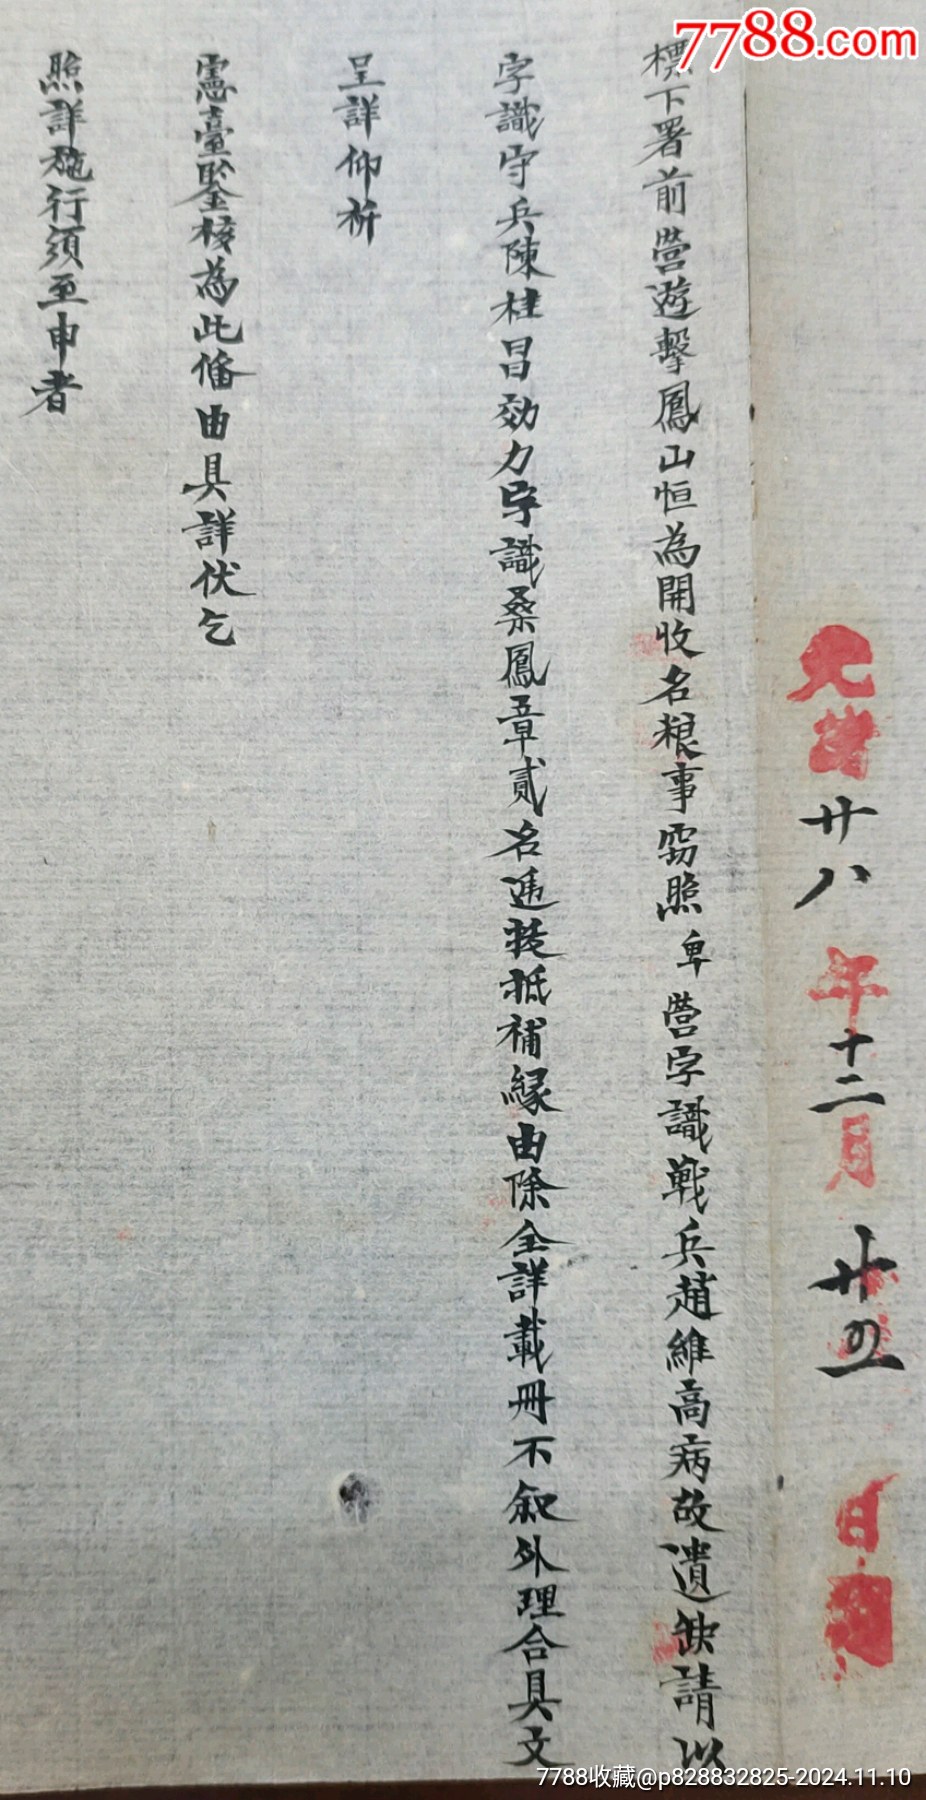 7788.com
光緒廿八年十二月廿四日
標下署前營遊擊鳳山恒為開收名粮事窃照卑營字識戰兵趙維高病故遺缺請以
字識守兵陳桂昌効力字識桑鳳章貳名逓拔抵補緣由除全詳載冊不叙外理合具文
呈詳仰祈
憲臺鑒核為此偹由具詳伏乞
照詳施行須至申者
7788收藏@p828832825-2024.11.10